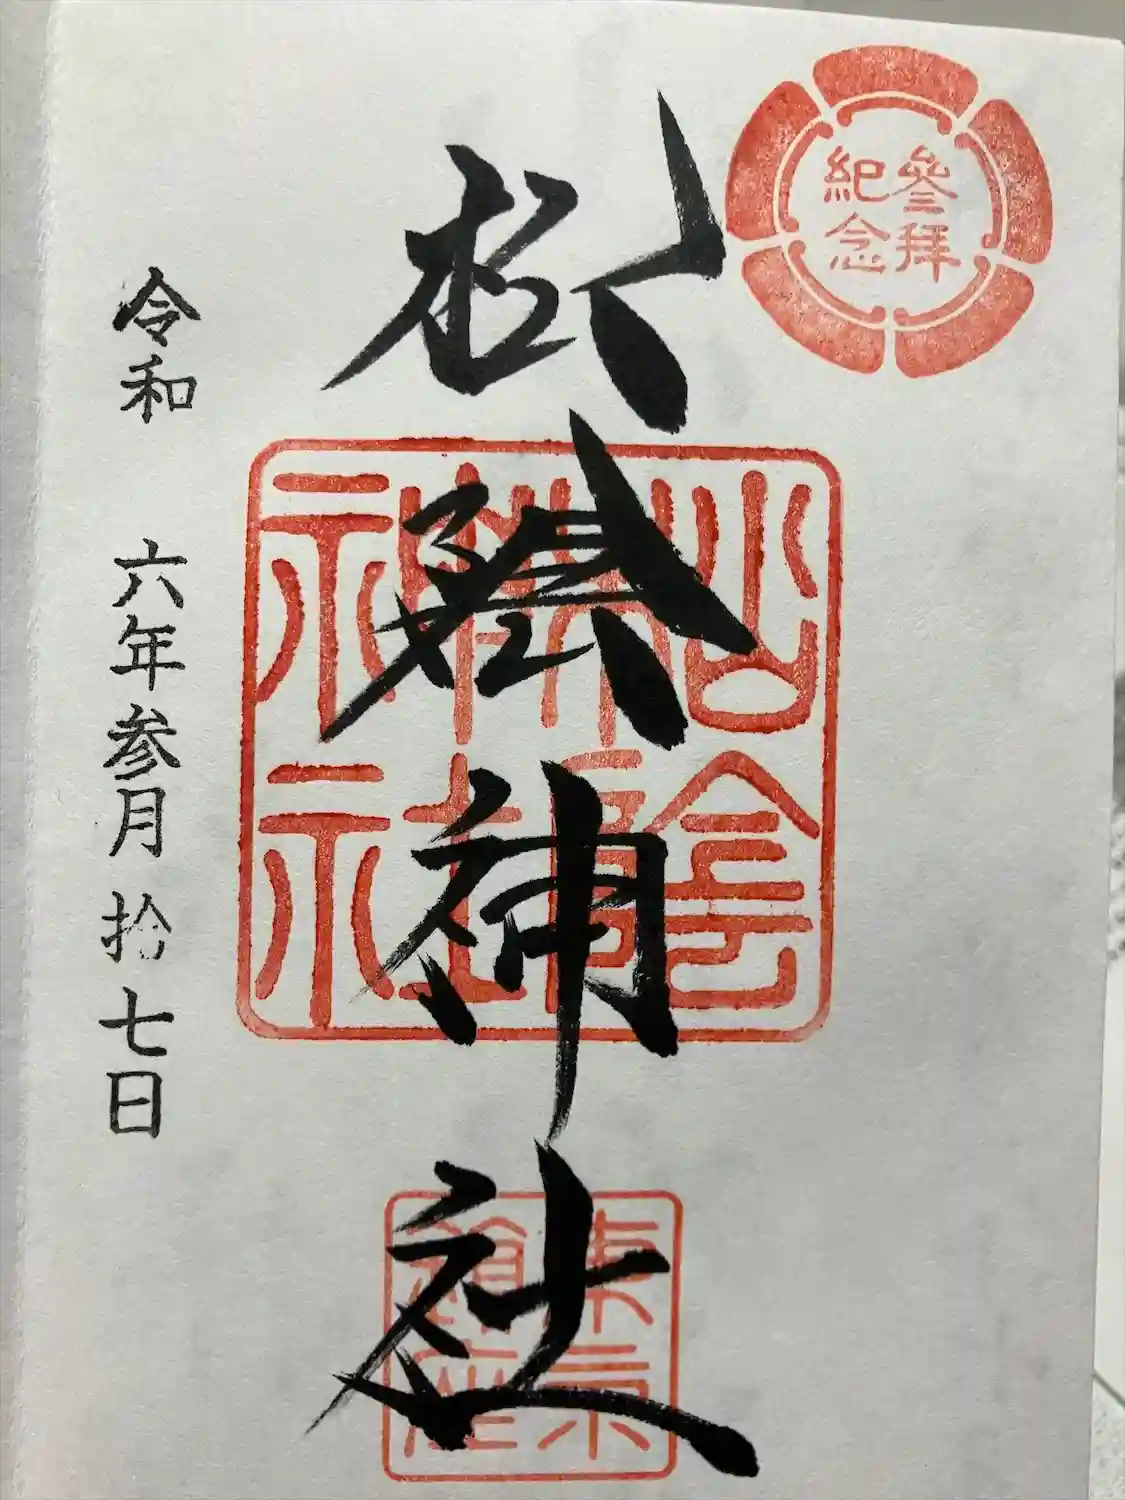 參拝
紀念
松陰神社
松陰
神社
東京
鎮座
令和 六年参月拾七日